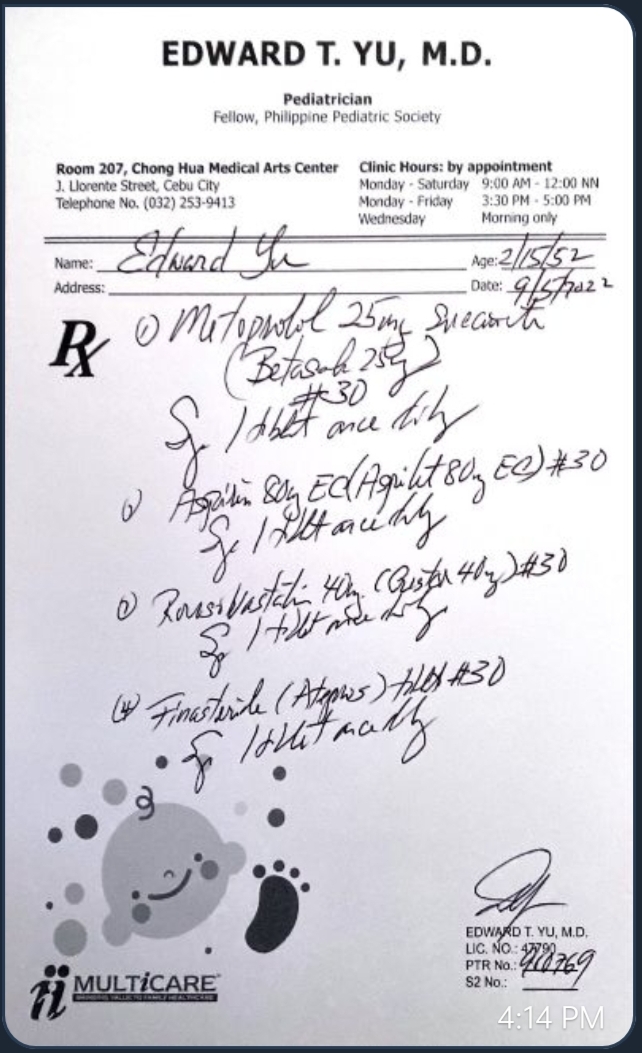 EDWARD T. YU, M.D.
Pediatrician
Fellow, Philippine Pediatric Society
Room 207, Chong Hua Medical Arts Center
J. Llorente Street, Cebu City
Telephone No. (032) 253-9413
Clinic Hours: by appointment
Monday - Saturday 9:00 AM - 12:00 NN
Monday - Friday 3:30 PM - 5:00 PM
Wednesday Morning only
Name: Edward Yu Age: 2/15/52
Address: Date: 9/5/2022
Rx
1) Metoprolol 25mg Succinate
(Betazok 25mg)
#30
Sig 1 tablet once daily
Aspirin 80mg EC (Aspilet 80mg EC) #30
Sig 1 tablet once daily
Rosuvastatin 40mg #30
Sig 1 tablet once daily
(4) Finasteride tablet #30
Sig 1 tablet once daily
EDWARD T. YU, M.D.
LIC. NO.: 47790
PTR No.:
S2 No.:
MULTiCARE
BRINGING VALUE TO FAMILY HEALTHCARE
4:14 PM